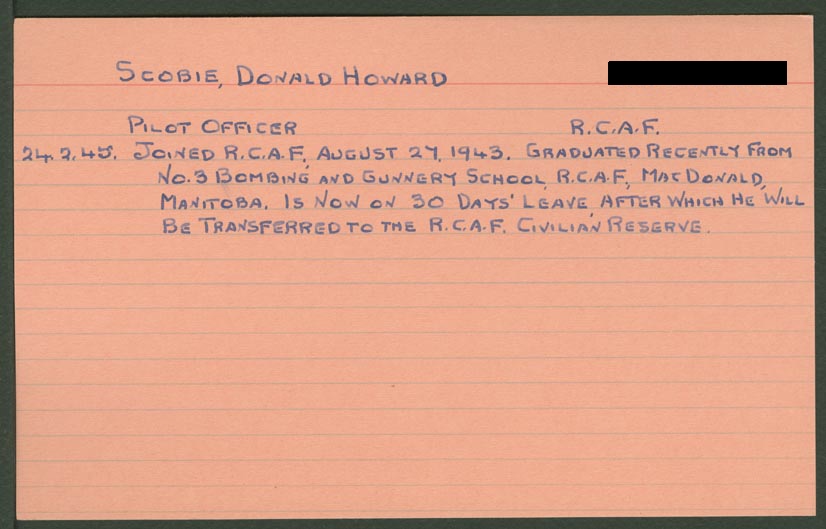 SCOBIE, DONALD HOWARD
PILOT OFFICER R.C.A.F.
24.2.45. JOINED R.C.A.F. AUGUST 27, 1943. GRADUATED RECENTLY FROM
NO.3 BOMBING AND GUNNERY SCHOOL, R.C.A.F., MACDONALD,
MANITOBA. IS NOW ON 30 DAYS' LEAVE, AFTER WHICH HE WILL
BE TRANSFERRED TO THE R.C.A.F. CIVILIAN RESERVE.